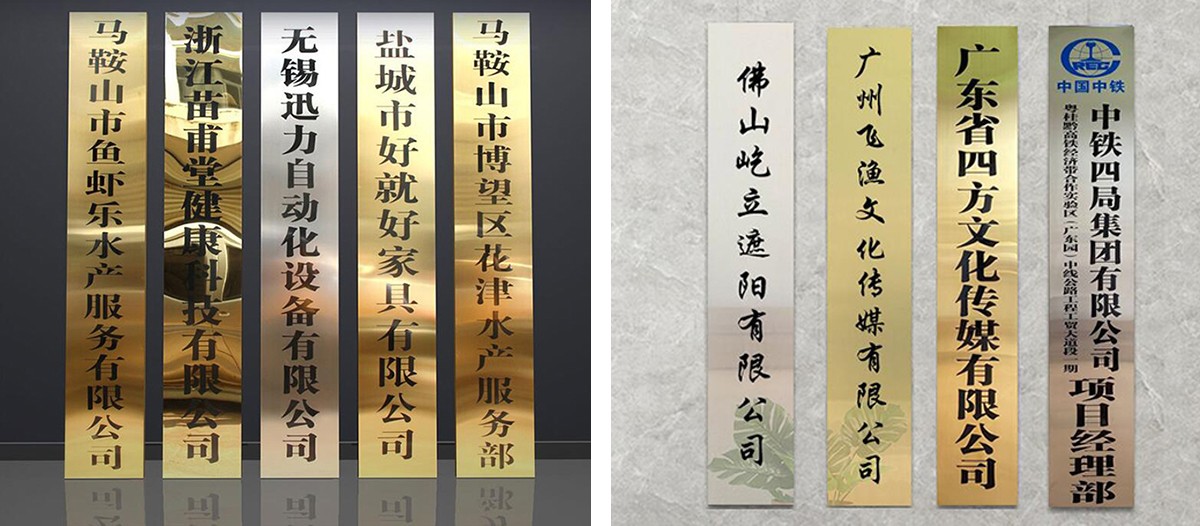 马鞍山市鱼虾乐水产服务有限公司
浙江苗甫堂健康科技有限公司
无锡迅力自动化设备有限公司
盐城市好就好家具有限公司
马鞍山市博望区花津水产服务部
佛山屹立遮阳有限公司
广州飞渔文化传媒有限公司
广东省四方文化传媒有限公司
CREC
中国中铁
中铁四局集团有限公司
粤桂黔高铁经济带合作实验区（广东园）中线公路工程工贸大道段一期
项目经理部